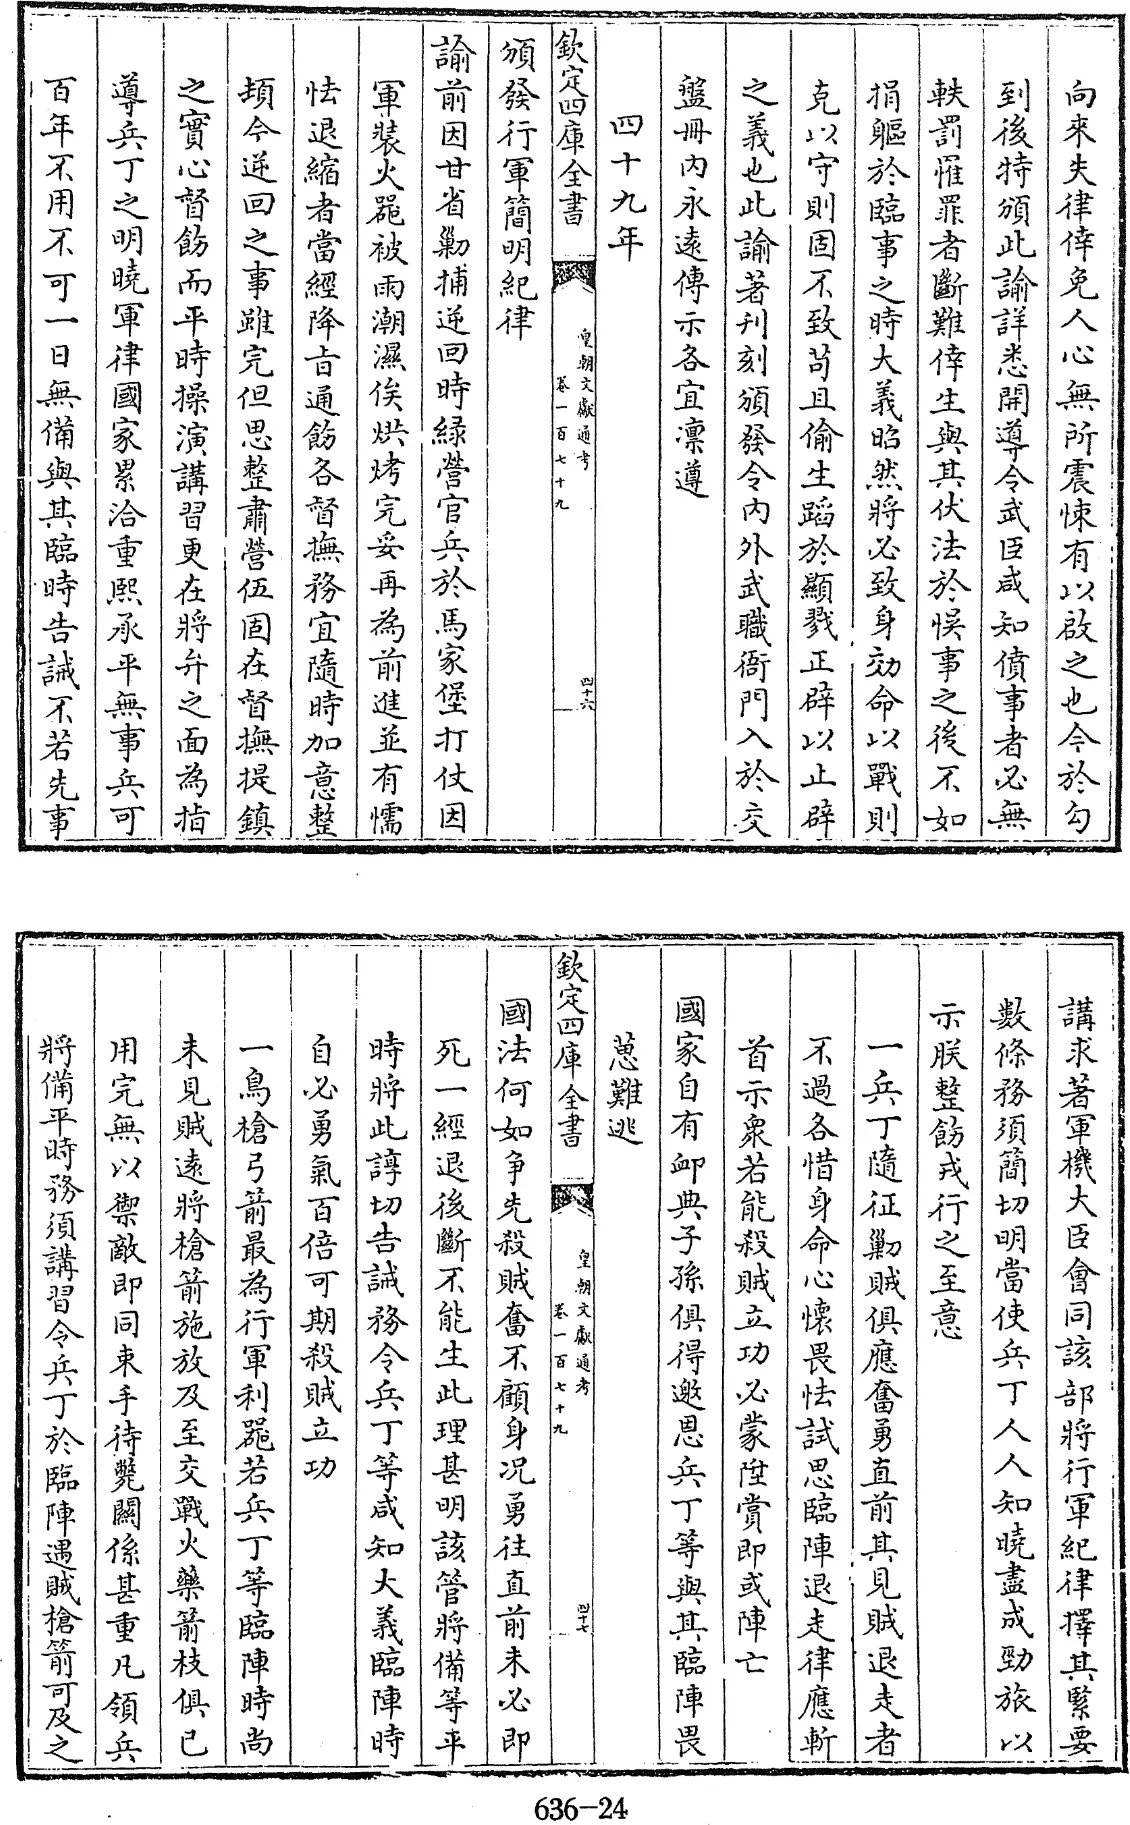 向來失律倖免人心無所震悚有以啟之也今於勾
到後特頒此諭詳悉開導令武臣咸知僨事者必無
軼罰罹罪者斷難倖生與其伏法於悞事之後不如
捐軀於臨事之時大義昭然將必致身効命以戰則
克以守則固不致苟且偷生蹈於顯戮正辟以止辟
之義也此諭著刋刻頒發令內外武職衙門入於交
盤冊內永遠傳示各宜凛遵
四十九年
欽定四庫全書
皇朝文獻通考
卷一百七十九
四十六
頒發行軍簡明紀律
諭前因甘省勦捕逆回時綠營官兵於馬家堡打仗因
軍裝火器被雨潮濕俟烘烤完妥再為前進並有懦
怯退縮者當經降旨通飭各督撫務宜隨時加意整
頓今逆回之事雖完但思整肅營伍固在督撫提鎮
之實心督飭而平時操演講習更在將弁之面為指
導兵丁之明曉軍律國家累洽重熙承平無事兵可
百年不用不可一日無備與其臨時告誡不若先事
講求著軍機大臣會同該部將行軍紀律擇其緊要
數條務須簡切明當使兵丁人人知曉盡成勁旅以
示朕整飭戎行之至意
一兵丁隨征勦賊俱應奮勇直前其見賊退走者
不過各惜身命心懷畏怯試思臨陣退走律應斬
首示衆若能殺賊立功必蒙陞賞即或陣亡
國家自有卹典子孫俱得邀恩兵丁等與其臨陣畏
葸難逃
欽定四庫全書
皇朝文獻通考
卷一百七十九
四十七
國法何如争先殺賊奮不顧身况勇往直前未必即
死一經退後斷不能生此理甚明該管將備等平
時將此諄切告誡務令兵丁等咸知大義臨陣時
自必勇氣百倍可期殺賊立功
一鳥槍弓箭最為行軍利器若兵丁等臨陣時尚
未見賊遠將槍箭施放及至交戰火藥箭枝俱已
用完無以禦敵即同束手待斃關係甚重凡領兵
將備平時務須講習令兵丁於臨陣遇賊槍箭可及之
636-24